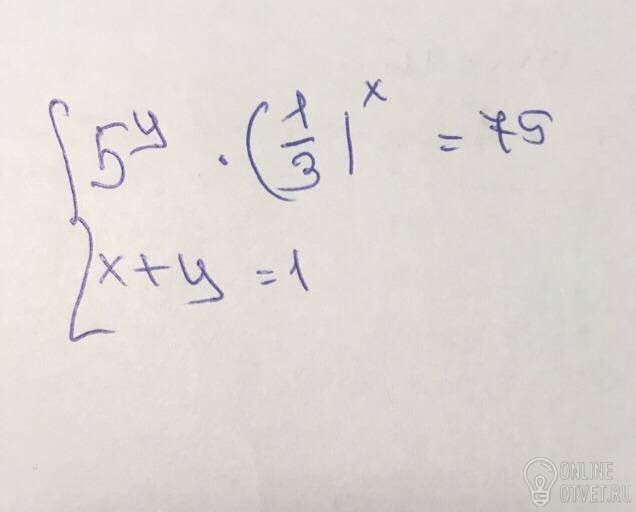 5^y · (1/3)^x = 75
x + y = 1
ONLINE
OTVET.RU